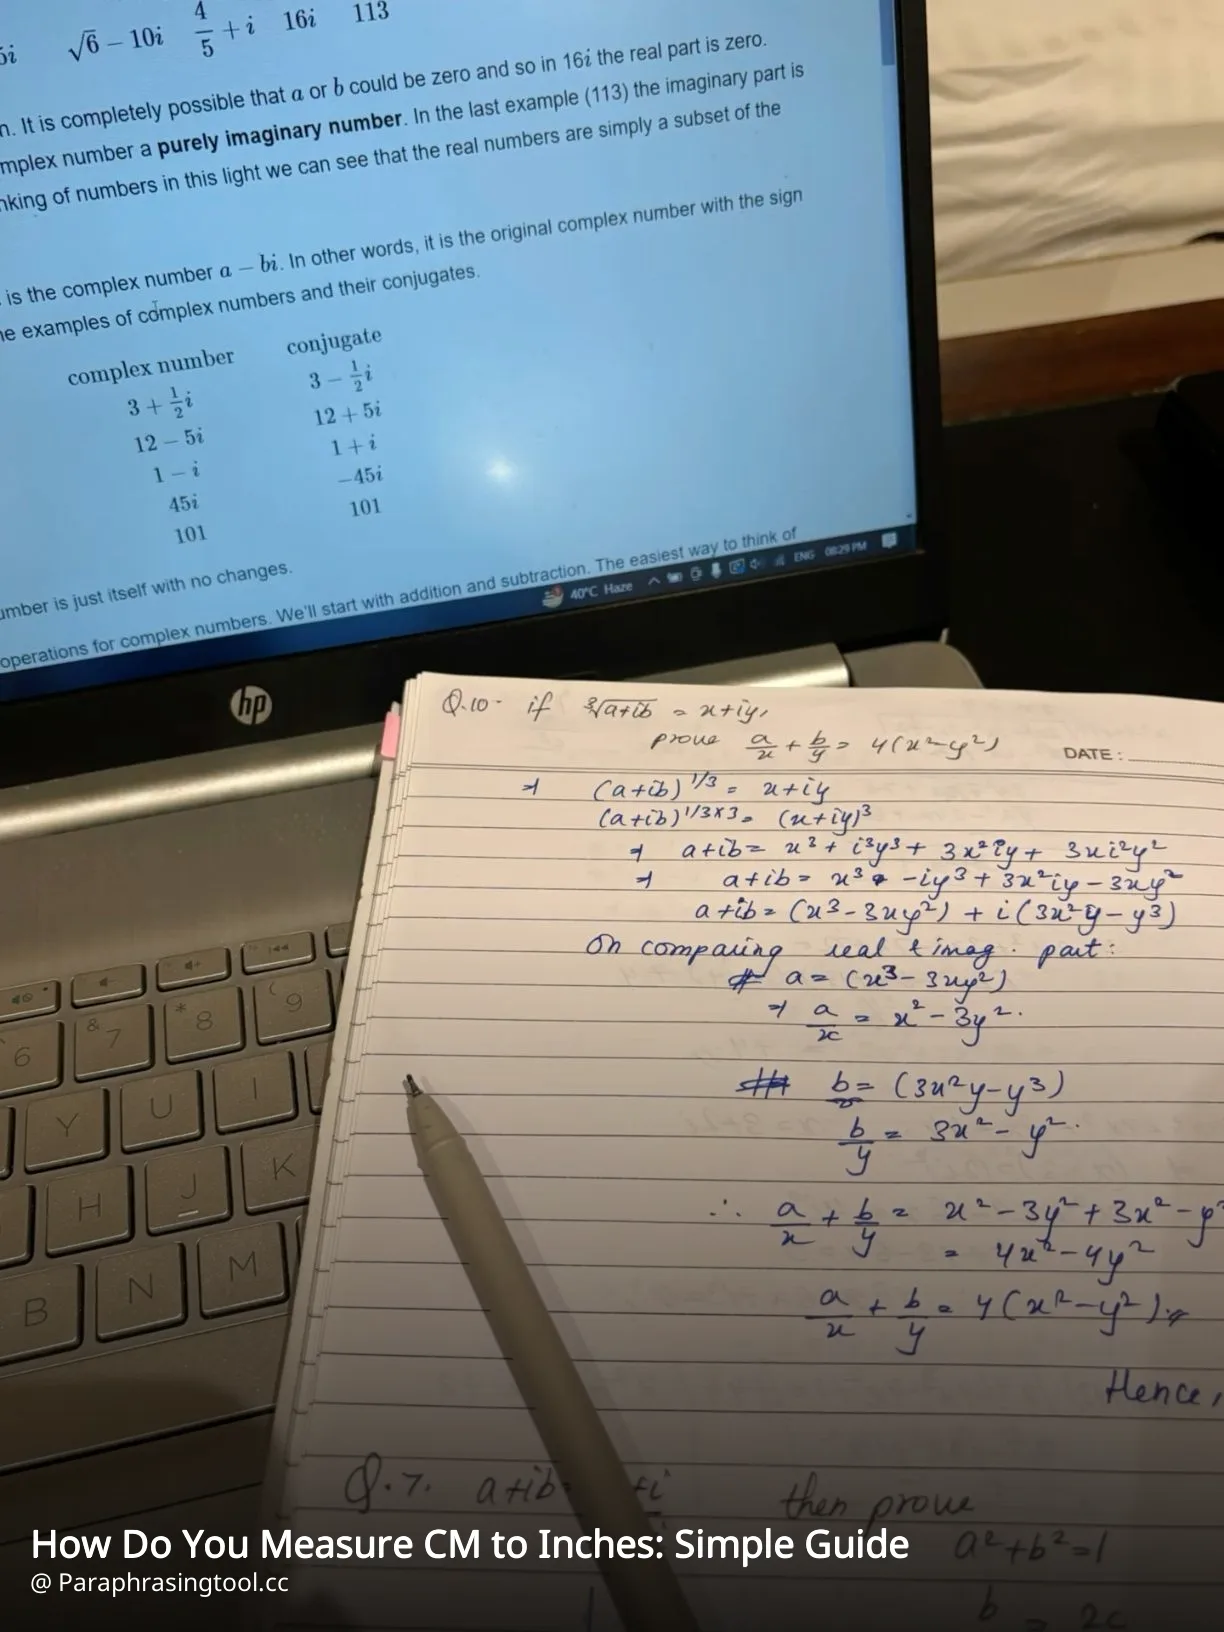 5i √6 − 10i 4/5 + i 16i 113
n. It is completely possible that a or b could be zero and so in 16i the real part is zero.
mplex number a purely imaginary number. In the last example (113) the imaginary part is
nking of numbers in this light we can see that the real numbers are simply a subset of the
is the complex number a − bi. In other words, it is the original complex number with the sign
ne examples of complex numbers and their conjugates.
complex number conjugate
3 + 1/2 i 3 − 1/2 i
12 − 5i 12 + 5i
1 − i 1 + i
45i −45i
101 101
umber is just itself with no changes.
operations for complex numbers. We'll start with addition and subtraction. The easiest way to think of
40°C Haze ENG 08:29 PM
hp
Q.10- if ∛a+ib = x+iy,
prove a/x + b/y = 4(x²-y²)
DATE:
⇒ (a+ib)^1/3 = x+iy
(a+ib)^1/3×3 = (x+iy)³
⇒ a+ib = x³ + i³y³ + 3x²iy + 3xi²y²
⇒ a+ib = x³ -iy³ + 3x²iy - 3xy²
a+ib = (x³-3xy²) + i(3x²y-y³)
On comparing real & imag. part:
a = (x³-3xy²)
⇒ a/x = x²-3y².
b = (3x²y-y³)
b/y = 3x²-y².
∴ a/x + b/y = x²-3y²+3x²-y²
= 4x²-4y²
a/x + b/y = 4(x²-y²).
Hence,
6 & 7 * 8 ( 9
Y U I
H J K
B N M
Q.7. a+ib= +i then prove
a²+b²=1
b 2c
How Do You Measure CM to Inches: Simple Guide
@ Paraphrasingtool.cc